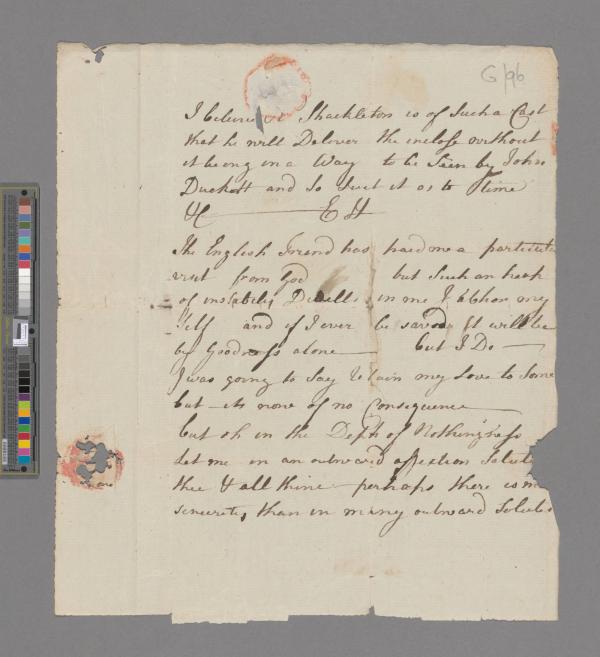 G/96
I believe Shackleton is of Such a Cast
that he will Deliver the inclose without
it being in a Way to be Seen by John
Duckett and So Suit it as to time
&C E H
The English Friend has paid me a particular
visit from God but Such an heap
of Dwells in me I abhor my
Self and if I ever be saved it will be
by Goodness alone but I Do
I was going to Say retain my Love to Some
but its none of no Consequence
but oh in the Depth of Nothingness
Let me in an outward affection Salute
thee & all thine perhaps there is more
sincerety than in many outward Salutes